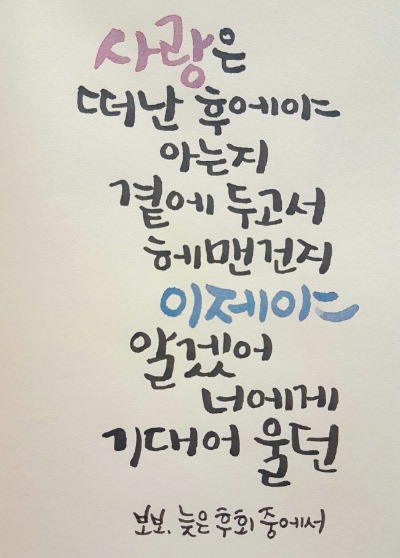 사랑은
떠난 후에야
아는지
곁에 두고서
헤맨건지
이제야
알겠어
너에게
기대어 울던
보보. 늦은 후회 중에서